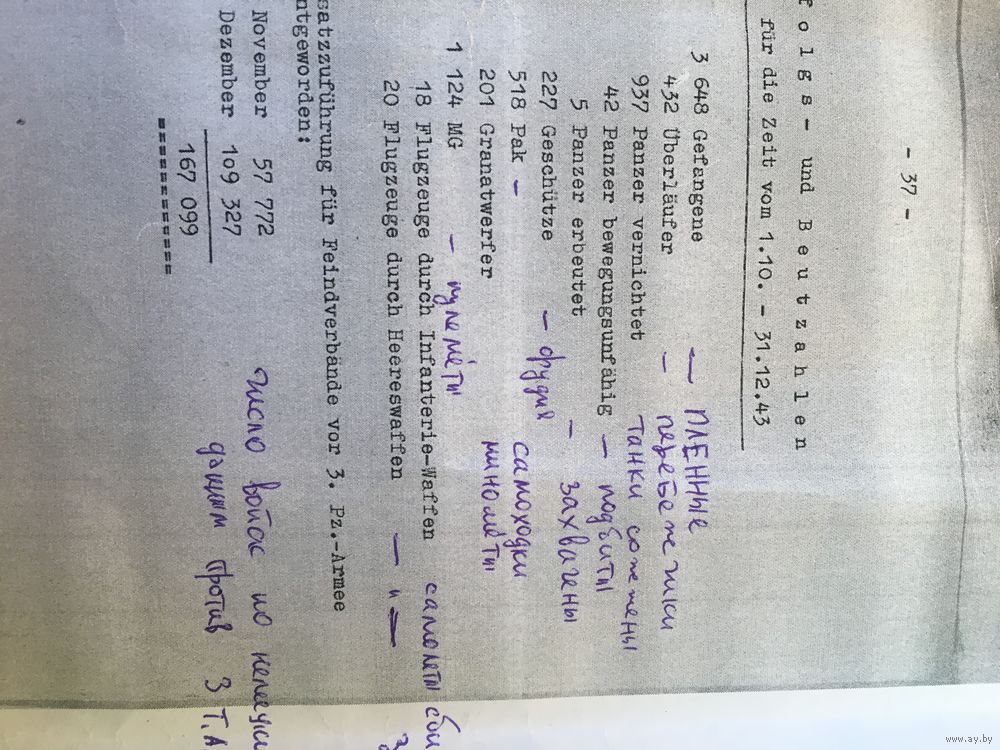 - 37 -
folgs- und Beutzahlen
für die Zeit vom 1.10. - 31.12.43
3 648 Gefangene — ПЛЕННЫЕ
432 Überläufer — перебежчики
937 Panzer vernichtet танки сожжены
42 Panzer bewegungsunfähig — подбиты
5 Panzer erbeutet — захвачены
227 Geschütze — орудия
518 Pak — самоходки
201 Granatwerfer миномёты
1 124 MG — пулемёты
18 Flugzeuge durch Infanterie-Waffen самолёты
20 Flugzeuge durch Heereswaffen — " —
satzzuführung für Feindverbände vor 3. Pz.-Armee
ntgeworden:
November 57 772
Dezember 109 327
167 099
===============
число войск по
данным против 3 Т.А
www.ay.by